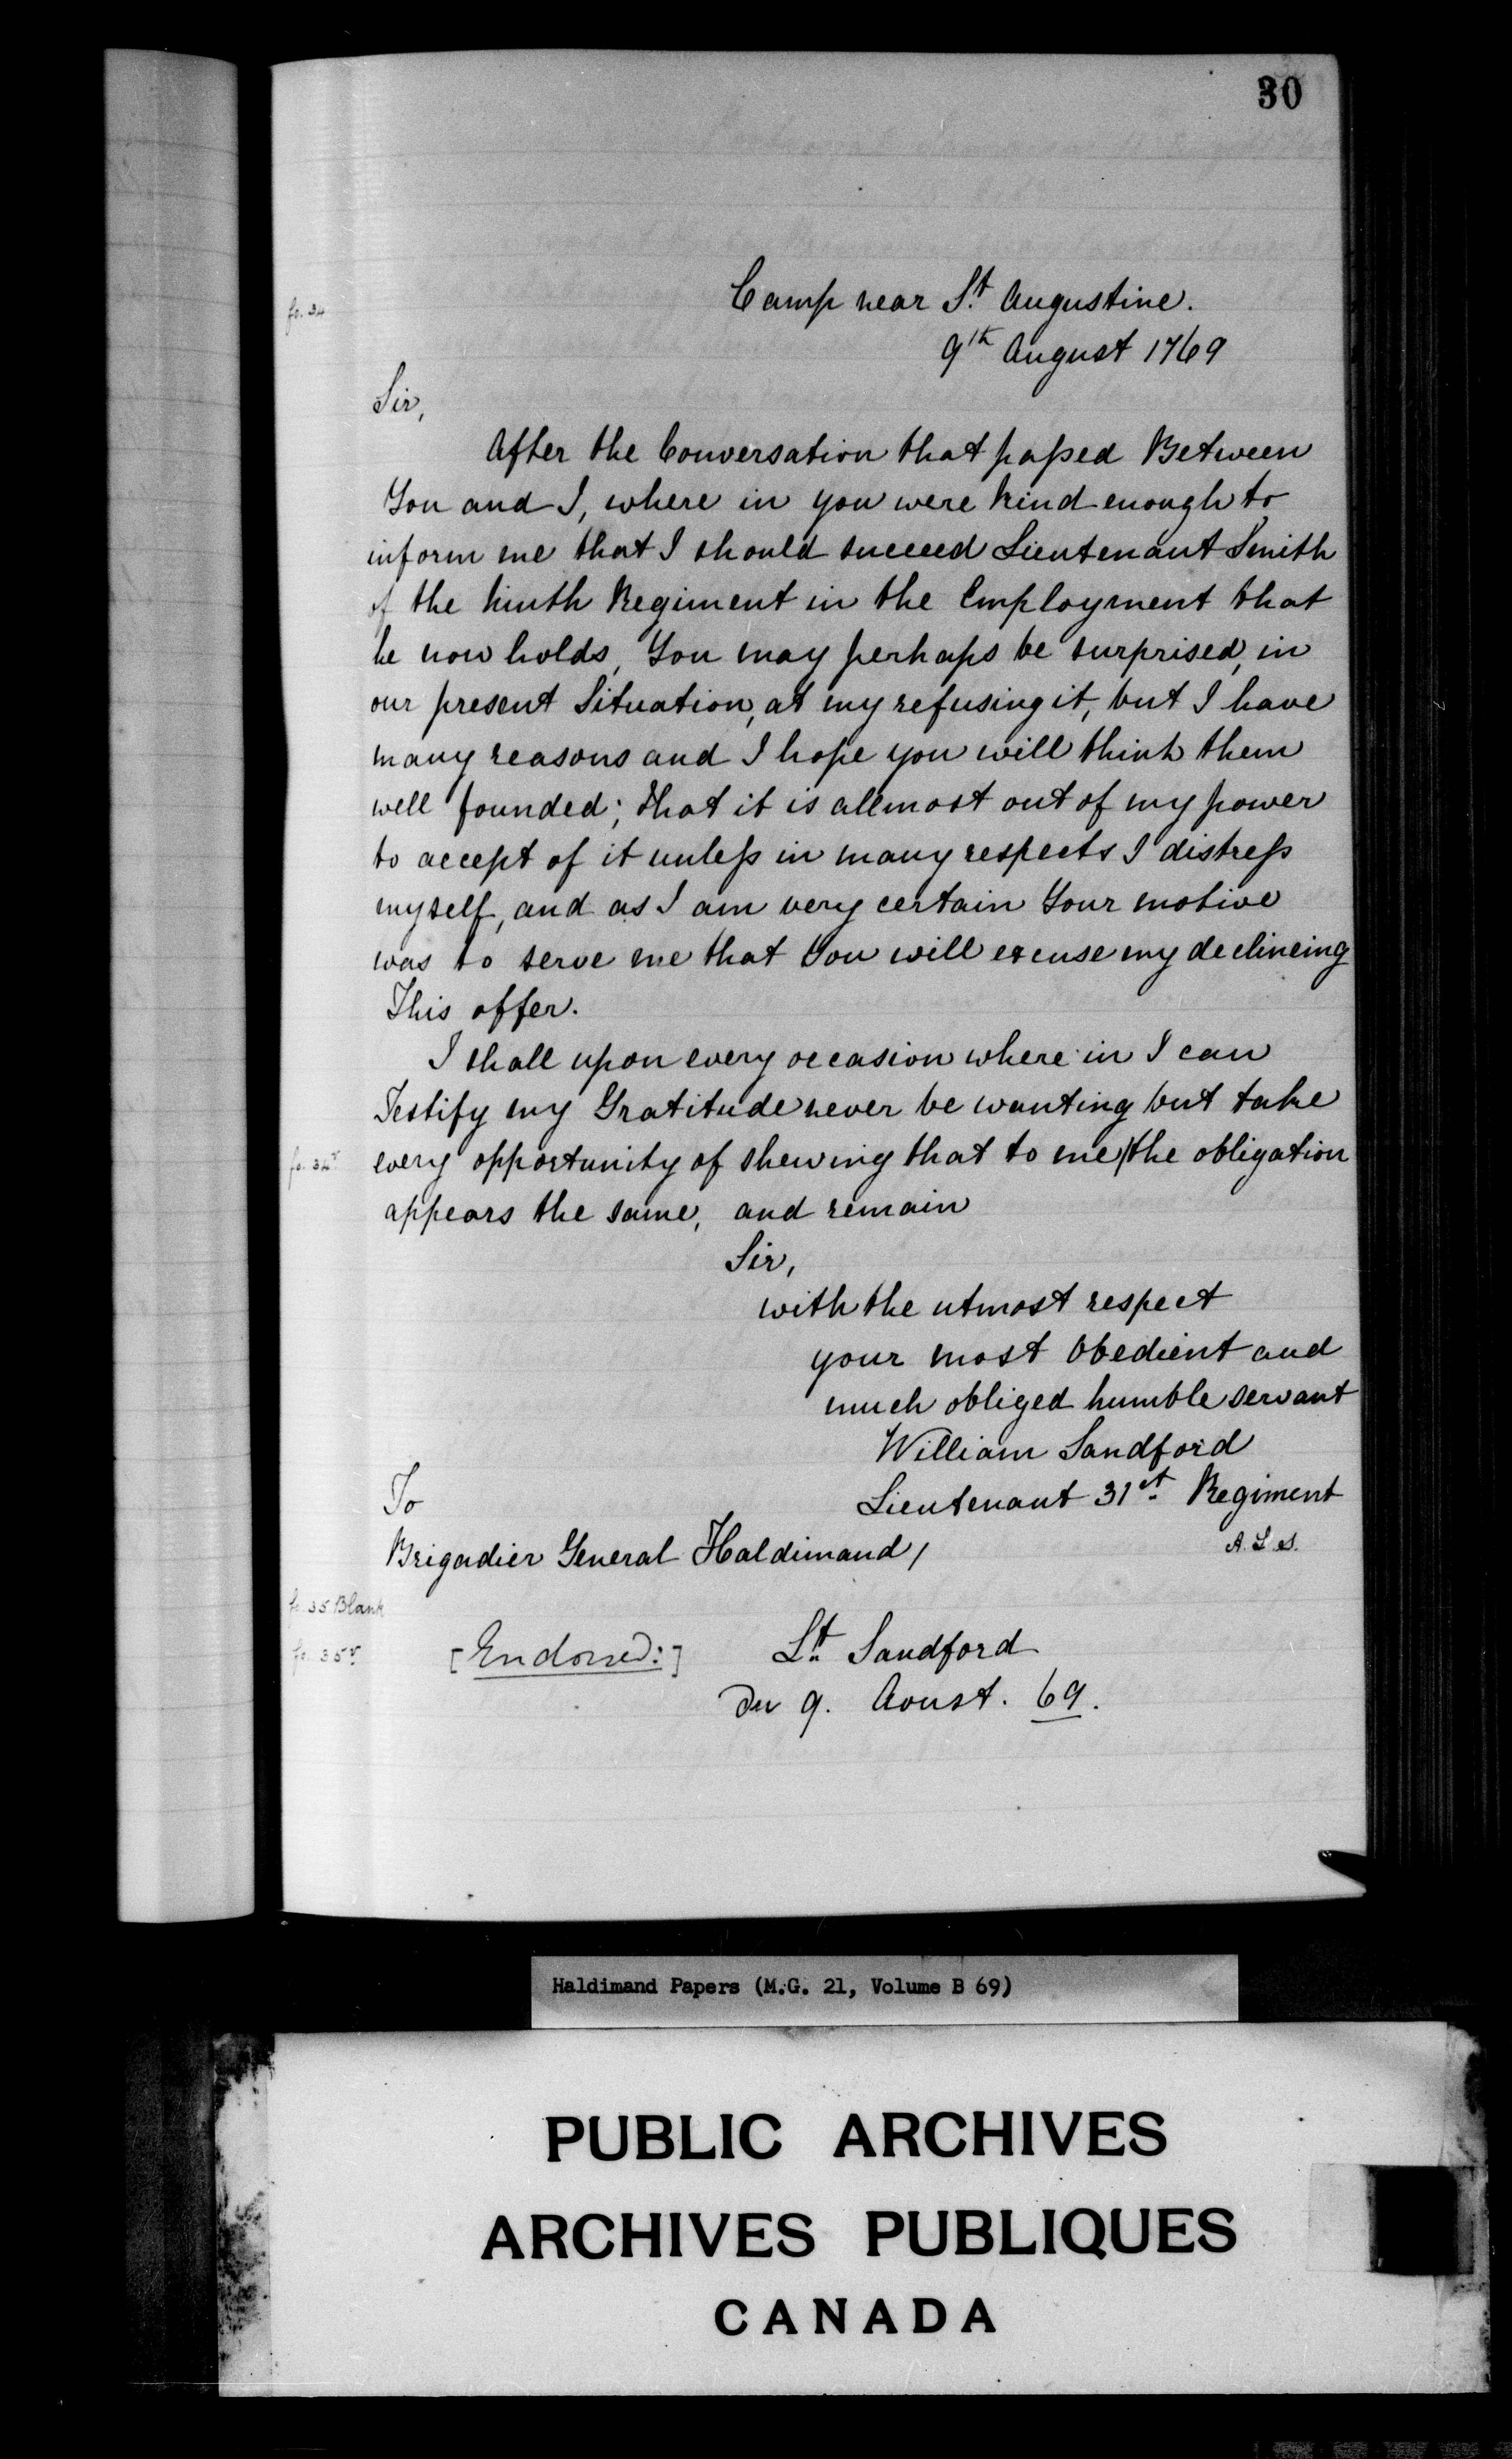 30
fo. 34
Camp near St. Augustine.
9th August 1769
Sir,
After the Conversation that passed Between
You and I, where in you were kind enough to
inform me that I should succeed Lieutenant Smith
of the Ninth Regiment in the Employment that
he now holds, You may perhaps be surprised, in
our present Situation, at my refusing it, but I have
many reasons and I hope you will think them
well founded; that it is allmost out of my power
to accept of it unless in many respects I distress
myself, and as I am very certain Your motive
was to serve me that You will excuse my declineing
This offer.
I shall upon every occasion where in I can
Testify my Gratitude never be wanting but take
fo. 34v every opportunity of shewing that to me/the obligation
appears the same, and remain
Sir,
with the utmost respect
your most Obedient and
much obliged humble servant
William Sandford
Lieutenant 31st Regiment
To
Brigadier General Haldimand,
A. L. S.
fo. 35 Blank
fo. 35v [Endorsed:] Lt. Sandford
du 9. Aoust. 69.
Haldimand Papers (M.G. 21, Volume B 69)
PUBLIC ARCHIVES
ARCHIVES PUBLIQUES
CANADA